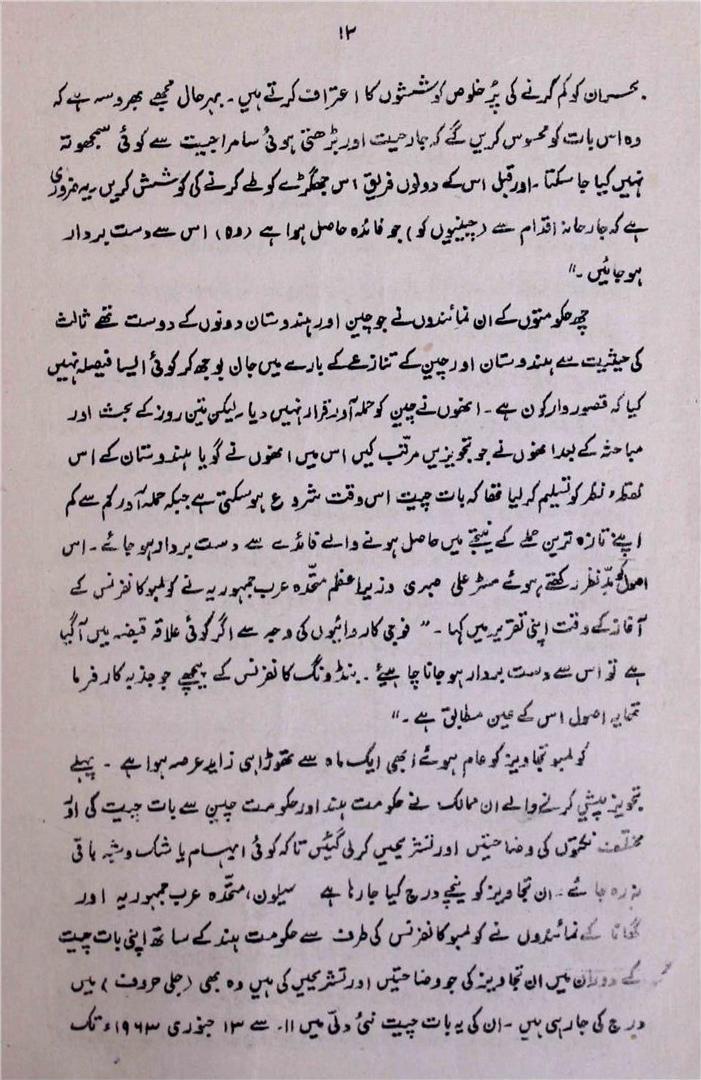 ۱۲
بحران کو کم کرنے کی پُر خلوص کوششوں کا اعتراف کرتے ہیں ۔ بہر حال مجھے بھروسہ ہے کہ
وہ اس بات کو محسوس کریں گے کہ جارحیت اور بڑھتی ہوئی سامراجیت سے کوئی سمجھوتہ
نہیں کیا جا سکتا ۔ اور قبل اس کے دونوں فریق اس جھگڑے کو طے کرنے کی کوشش کریں ۔ یہ ضروری
ہے کہ جارحانہ اقدام سے (چینیوں کو) جو فائدہ حاصل ہوا ہے (وہ) اس سے دست بردار
ہو جائیں ۔"
چھ حکومتوں کے ان نمائندوں نے جو چین اور ہندوستان دونوں کے دوست تھے ثالث
کی حیثیت سے ہندوستان اور چین کے تنازعے کے بارے میں جان بوجھ کر کوئی ایسا فیصلہ نہیں
کیا کہ قصوروار کون ہے ۔ انھوں نے چین کو حملہ آور قرار نہیں دیا ۔ لیکن تین روز کے بحث اور
مباحثہ کے بعد انھوں نے جو تجویزیں مرتب کیں اس میں انھوں نے گویا ہندوستان کے اس
نقطۂ نظر کو تسلیم کر لیا تھا کہ بات چیت اس وقت شروع ہو سکتی ہے جبکہ حملہ آور کم سے کم
اپنے تازہ ترین حملے کے نتیجے میں حاصل ہونے والے فائدے سے دست بردار ہو جائے ۔ اس
اصول کو مدِّ نظر رکھتے ہوئے مسٹر علی صبری وزیر اعظم متحدہ عرب جمہوریہ نے کولمبو کانفرنس کے
آغاز کے وقت اپنی تقریر میں کہا ۔ " فوجی کاروائیوں کی وجہ سے اگر کوئی علاقہ قبضہ میں آ گیا
ہے تو اس سے دست بردار ہو جانا چاہیئے ۔ بنڈونگ کانفرنس کے پیچھے جو جذبہ کار فرما
تھا یہ اصول اس کے عین مطابق ہے ۔"
کولمبو تجاویز کو عام ہوئے ابھی ایک ماہ سے تھوڑا ہی زاید عرصہ ہوا ہے ۔ پہلے
تجویز پیش کرنے والے ان ممالک نے حکومت ہند اور حکومت چین سے بات چیت کی اور
مختلف نکتوں کی وضاحتیں اور تشریحیں کر لی گئیں تاکہ کوئی ابہام یا شک و شبہ باقی
نہ رہ جائے ۔ ان تجاویز کو نیچے درج کیا جا رہا ہے سیلون، متحدہ عرب جمہوریہ اور
گھانا کے نمائندوں نے کولمبو کانفرنس کی طرف سے حکومت ہند کے ساتھ اپنی بات چیت
کے دوران میں ان تجاویز کی جو وضاحتیں اور تشریحیں کی ہیں وہ بھی (جلی حروف) میں
درج کی جا رہی ہیں ۔ ان کی یہ بات چیت نئی دلّی میں ۱۱۔ سے ۱۳ جنوری ۱۹۶۳ء تک